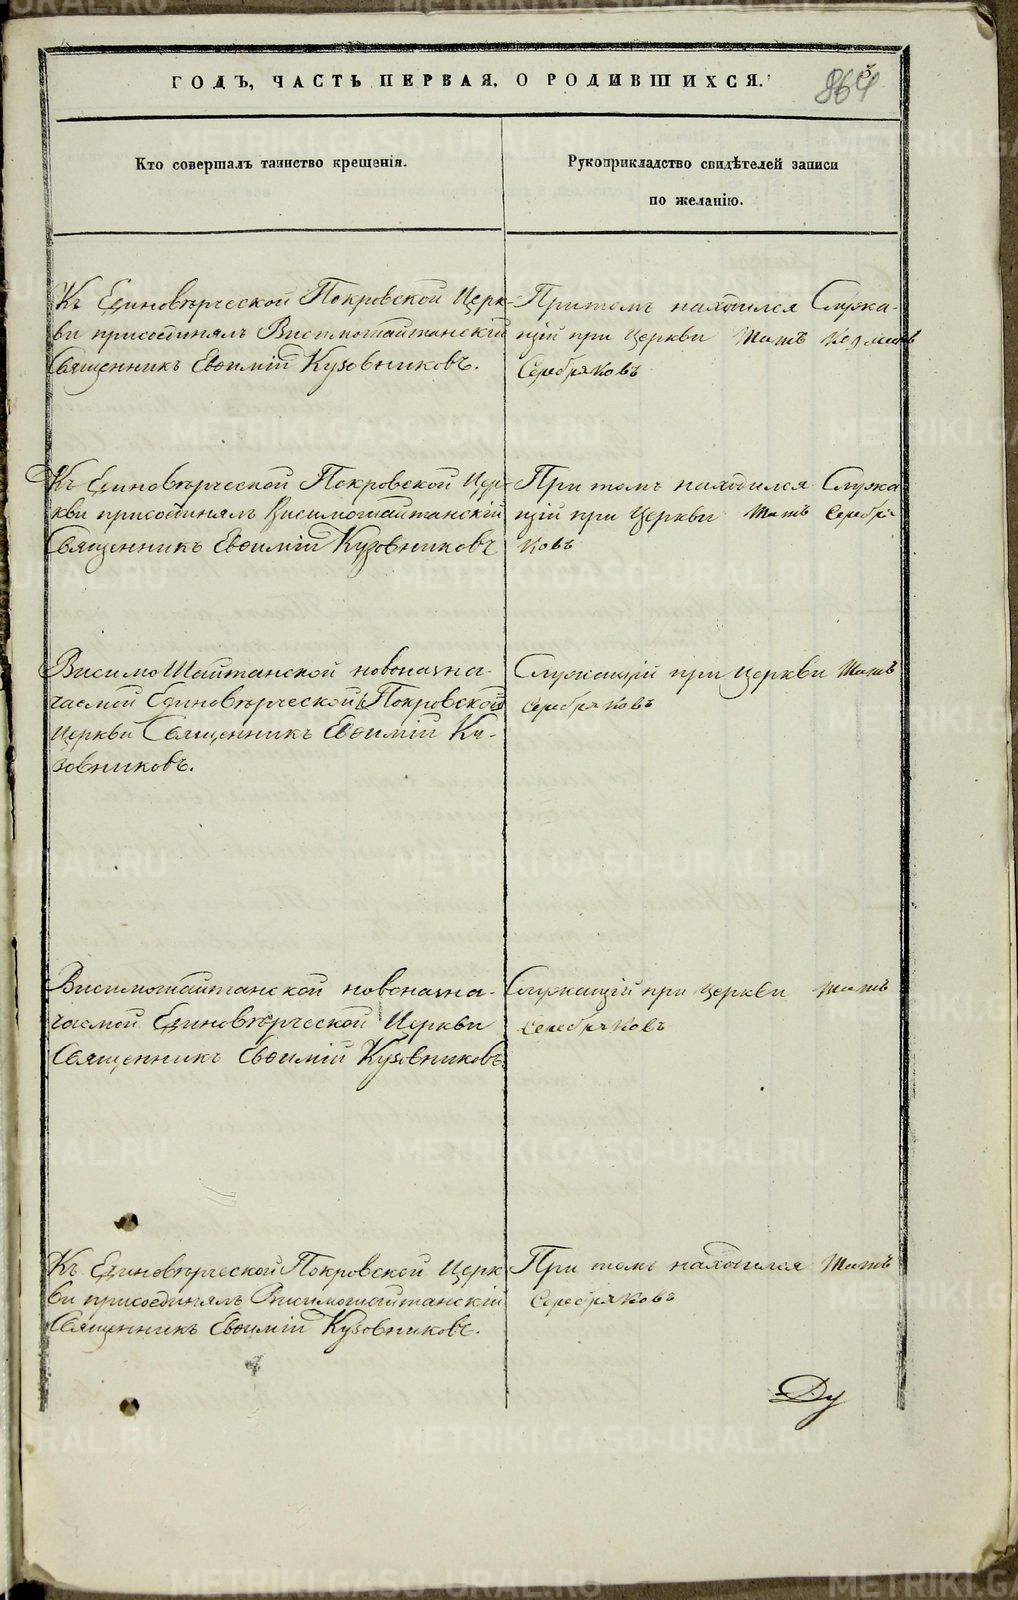 ГОДЪ, ЧАСТЬ ПЕРВАЯ, О РОДИВШИХСЯ.
3
864
Кто совершалъ таинство крещенія.
Рукоприкладство свидѣтелей записи
по желанію.
Къ Единовѣрческой Покровской Церк-
ви присоединялъ Висимошайтанскій
Священникъ Евѳимій Кузовниковъ.
Притомъ находился Служа-
щій при Церкви
Серебряковъ
Къ Единовѣрческой Покровской Цер-
кви присоединялъ Висимошайтанскій
Священникъ Евѳимій Кузовниковъ
При томъ находился Служа
щій при Церкви Серебря-
ковъ
Висимо Шайтанской новоназна-
чаемой Единовѣрческой Покровской
Церкви Священникъ Евѳимій Ку-
зовниковъ.
Служащій при Церкви
Серебряковъ
Висимошайтанской новоназна-
чаемой Единовѣрческой Церкви
Священникъ Евѳимій Кузовниковъ.
Служащій при Церкви
Серебряковъ
Къ Единовѣрческой Покровской Церк
ви присоединялъ Висимошайтанскій
Священникъ Евѳимій Кузовниковъ.
При томъ находился
Серебряковъ
Ду
METRIKI.GASO-URAL.RU